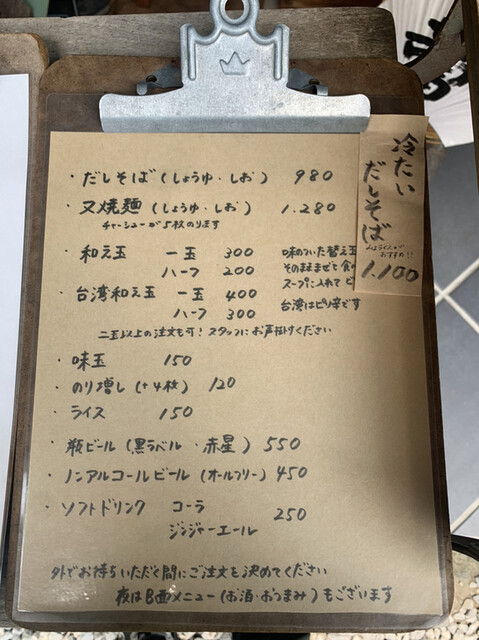 ・だしそば(しょうゆ・しお) 980
・叉焼麺(しょうゆ・しお) 1.280
チャーシューが5枚のります
・和え玉 一玉 300 味のついた替え玉
ハーフ 200 そのまままぜて食
スープに入れて
・台湾和え玉 一玉 400 台湾はピリ辛です
ハーフ 300
二玉以上の注文も可!スタッフにお声掛けください
・味玉 150
・のり増し(+4枚) 120
・ライス 150
・瓶ビール(黒ラベル・赤星) 550
・ノンアルコールビール(オールフリー) 450
・ソフトドリンク コーラ 250
ジンジャーエール
外でお待ちいただく間にご注文を決めてください
夜はB面メニュー(お酒・おつまみ)もございます
冷たい
だしそば
おすすめ!!
1.100